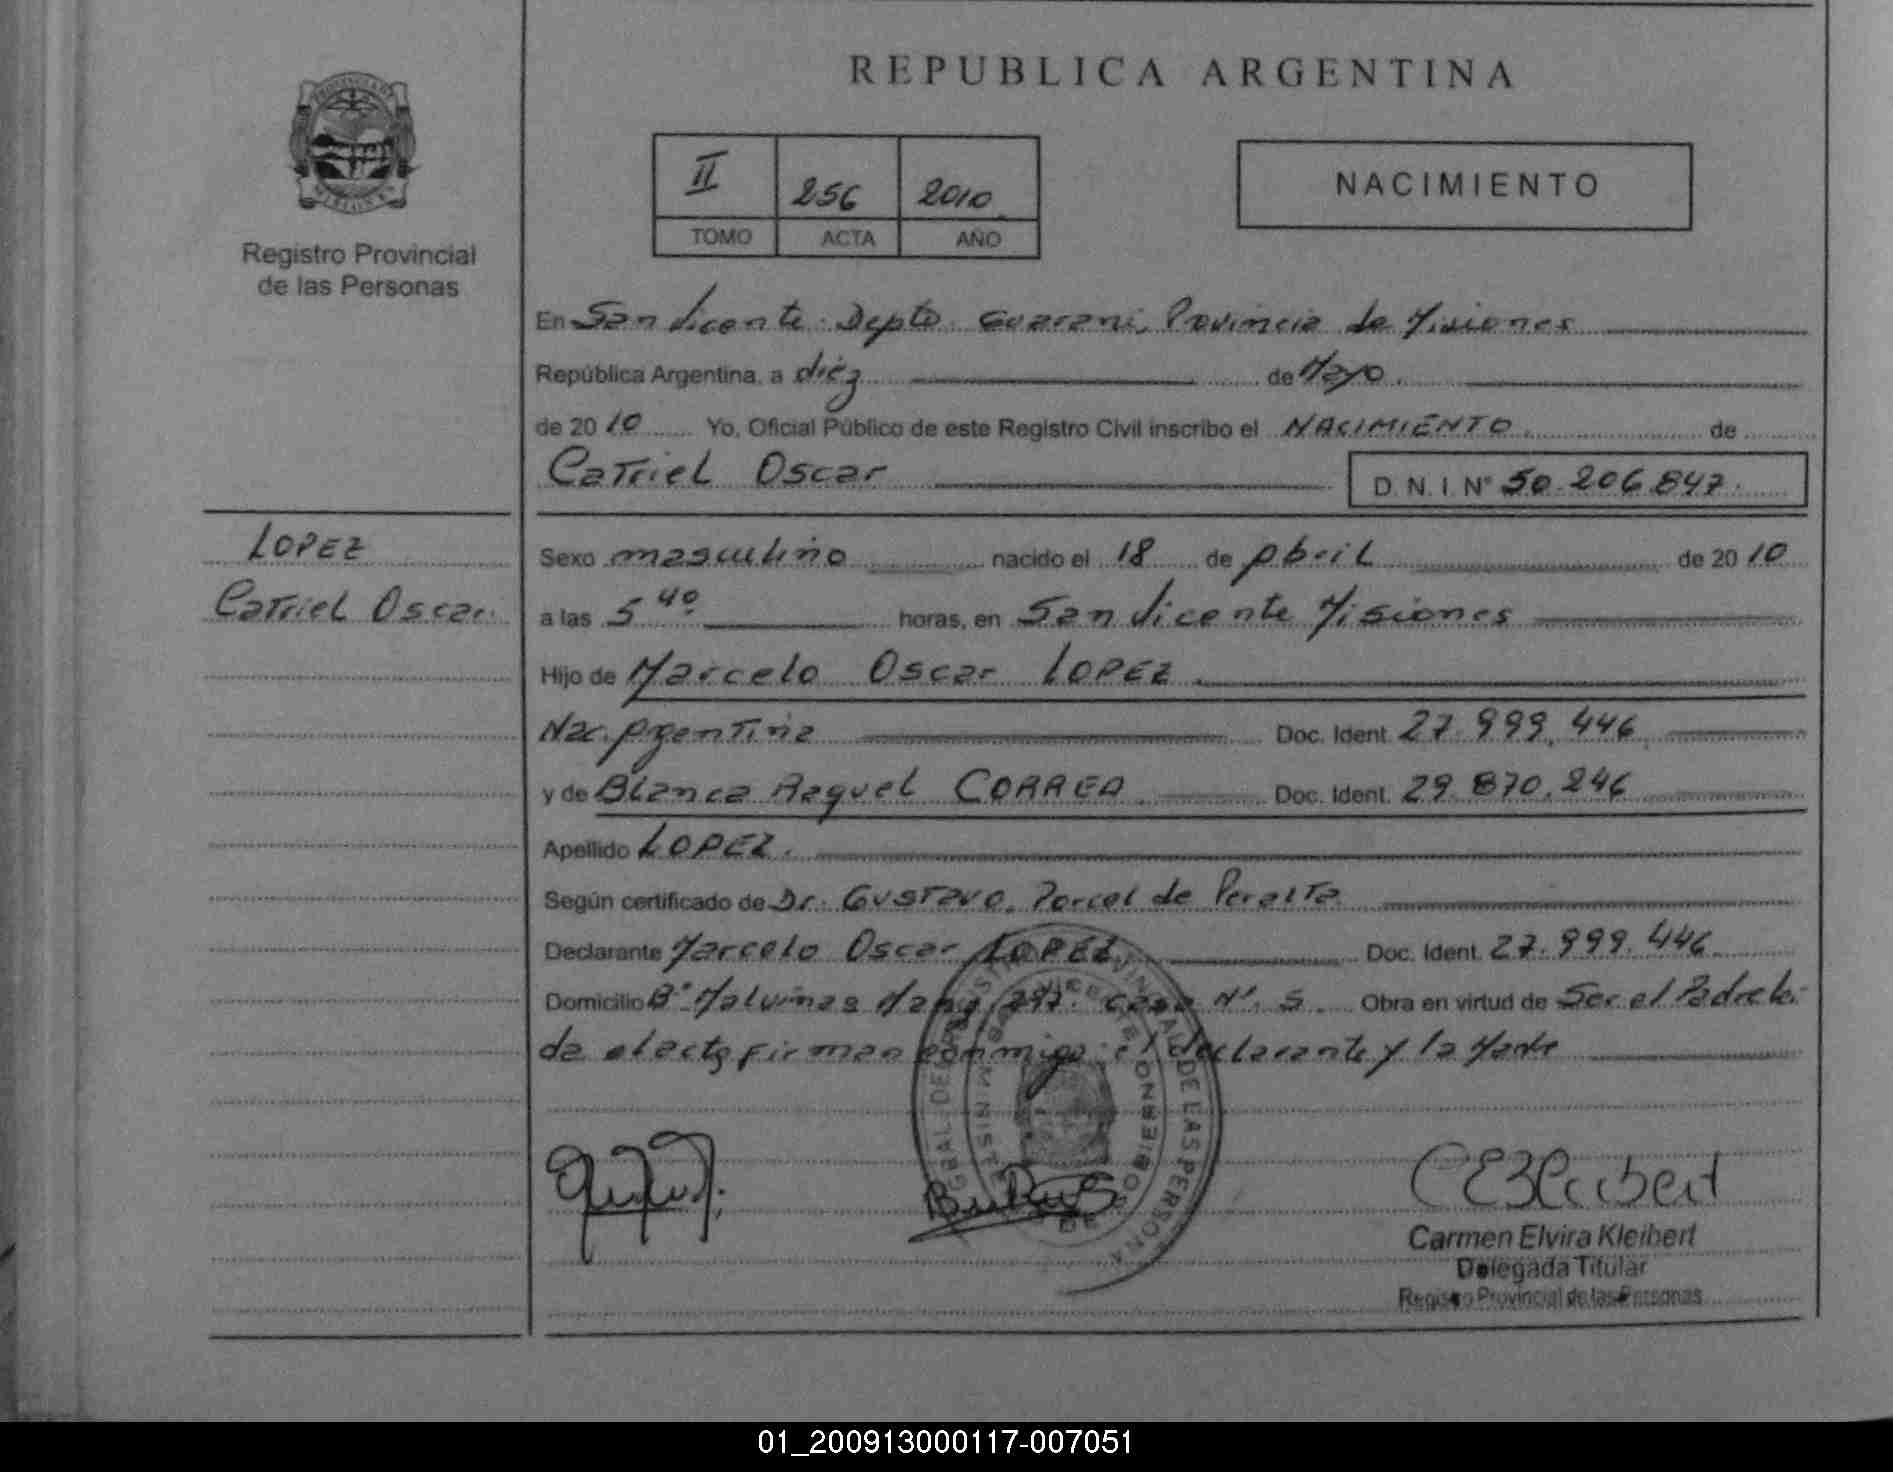 REPUBLICA ARGENTINA
Registro Provincial
de las Personas
II 256 2010
TOMO ACTA AÑO
NACIMIENTO
En San Vicente Depto Guarani, Provincia de Misiones
República Argentina, a diez de Mayo
de 2010 Yo, Oficial Público de este Registro Civil inscribo el NACIMIENTO de
Catriel Oscar D.N.I. Nº 50.206.847
LOPEZ
Catriel Oscar
Sexo masculino nacido el 18 de Abril de 2010
a las 5 40 horas, en San Vicente Misiones
Hijo de Marcelo Oscar LOPEZ
Nac. Argentina Doc. Ident. 27.999.446
y de Blanca Raquel CORREA Doc. Ident. 29.870.246
Apellido LOPEZ.
Según certificado de Dr. Gustavo. Porcel de Peralta
Declarante Marcelo Oscar LOPEZ Doc. Ident. 27.999.446
Domicilio Bº Malvinas casa Nº. 5 Obra en virtud de Ser el Padre
da el acta firman conmigo el declarante y la Madre
Carmen Elvira Kleibert
Delegada Titular
Registro Provincial de las Personas
01_200913000117-007051